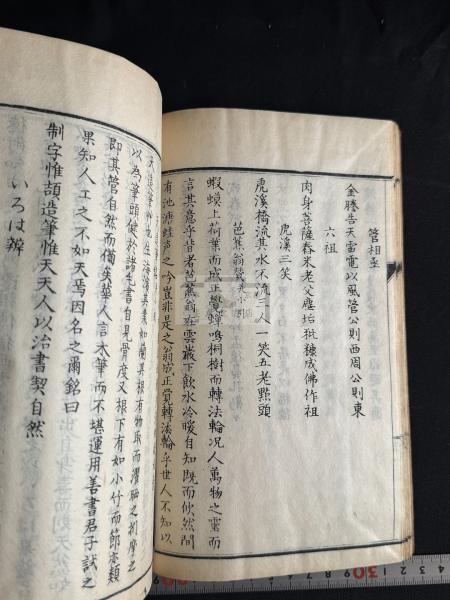 菅相丞
金縢告天雷電以風管公則西周公則東
六祖
肉身菩薩舂米老父塵垢粃糠成佛作祖
虎溪三笑
虎溪橋流其水不流三人一笑五老點頭
芭蕉翁
蝦蟆上荷葉而成正覺蟬鳴桐樹而轉法輪况人萬物之靈而
言其意乎昔者芭蕉翁在雲巖下飲水冷暖自知既而俛然間
有池溏蛙声之吟豈非是之翁成正覺轉法輪乎世人不知以
天造筆
以為筆頭健於諸毛書自見骨度又根下有如小竹而節亦類
即其管自然而備矣華人言木筆而不堪運用善書君子試之
果知人工之不如天焉因名之爾銘曰
制字惟頡造筆惟天天人以治書契自然
いろは辨